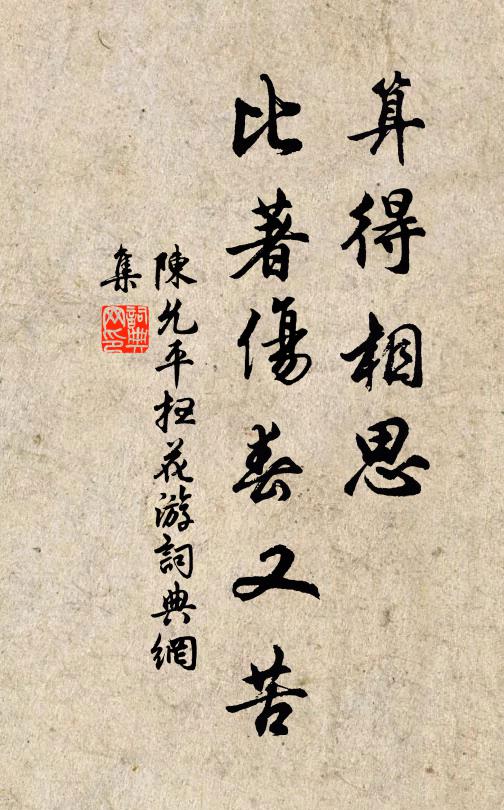 算得相思
比著傷春又苦
陳允平掃花游詞典網
集
詞典
网印